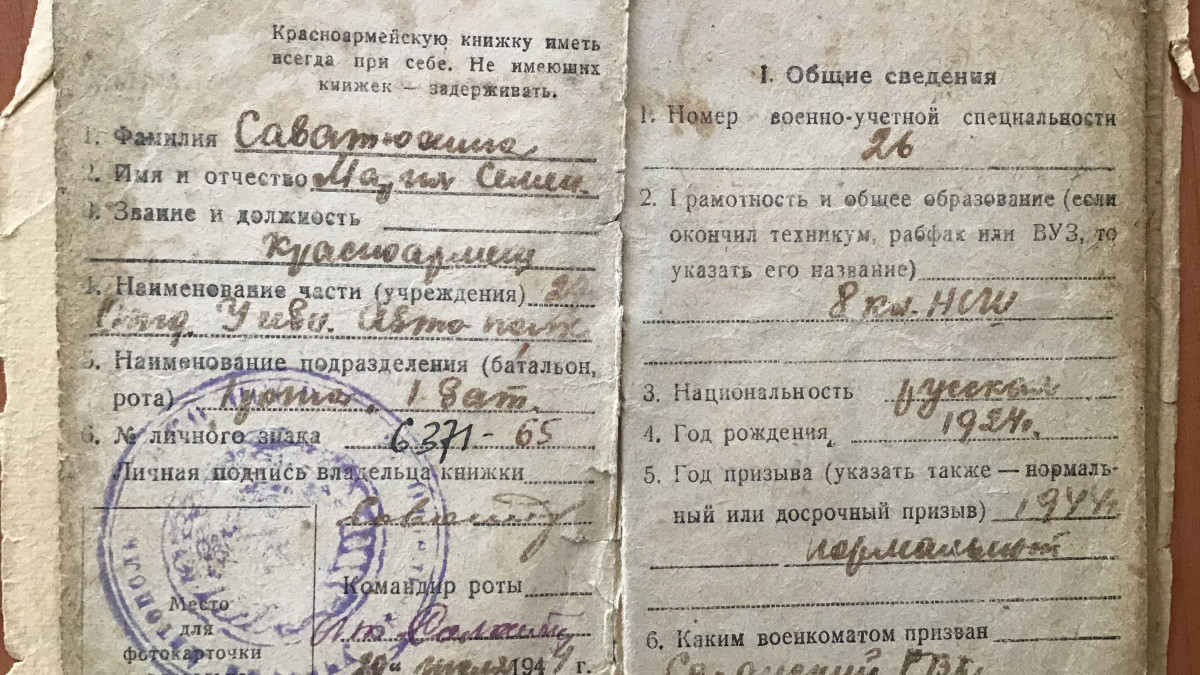 Красноармейскую книжку иметь
всегда при себе. Не имеющих
книжек — задерживать.
1. Фамилия Саватюхина
2. Имя и отчество Мария Семен.
3. Звание и должность
Красноармеец
4. Наименование части (учреждения)
Авто полк
5. Наименование подразделения (батальон,
рота) 1 бат.
6. № личного знака 6371-65
Личная подпись владельца книжки
Командир роты
Место
для
фотокарточки
июля 1944 г.
I. Общие сведения
1. Номер военно-учетной специальности
26
2. Грамотность и общее образование (если
окончил техникум, рабфак или ВУЗ, то
указать его название)
8 кл. НСШ
3. Национальность русская
4. Год рождения 1924г.
5. Год призыва (указать также — нормаль-
ный или досрочный призыв) 1944г
нормальный
6. Каким военкоматом призван
РВК